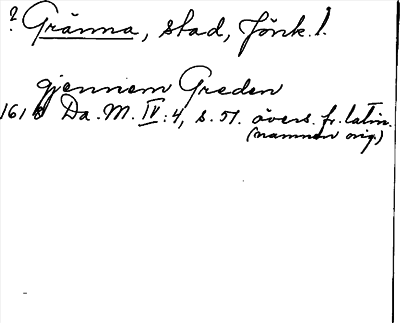 ? Gränna, stad, Jönk. l.
gjennem Greden
161 Da. M. IV:4, s. 51. övers. fr. latin.
(namnen orig.)